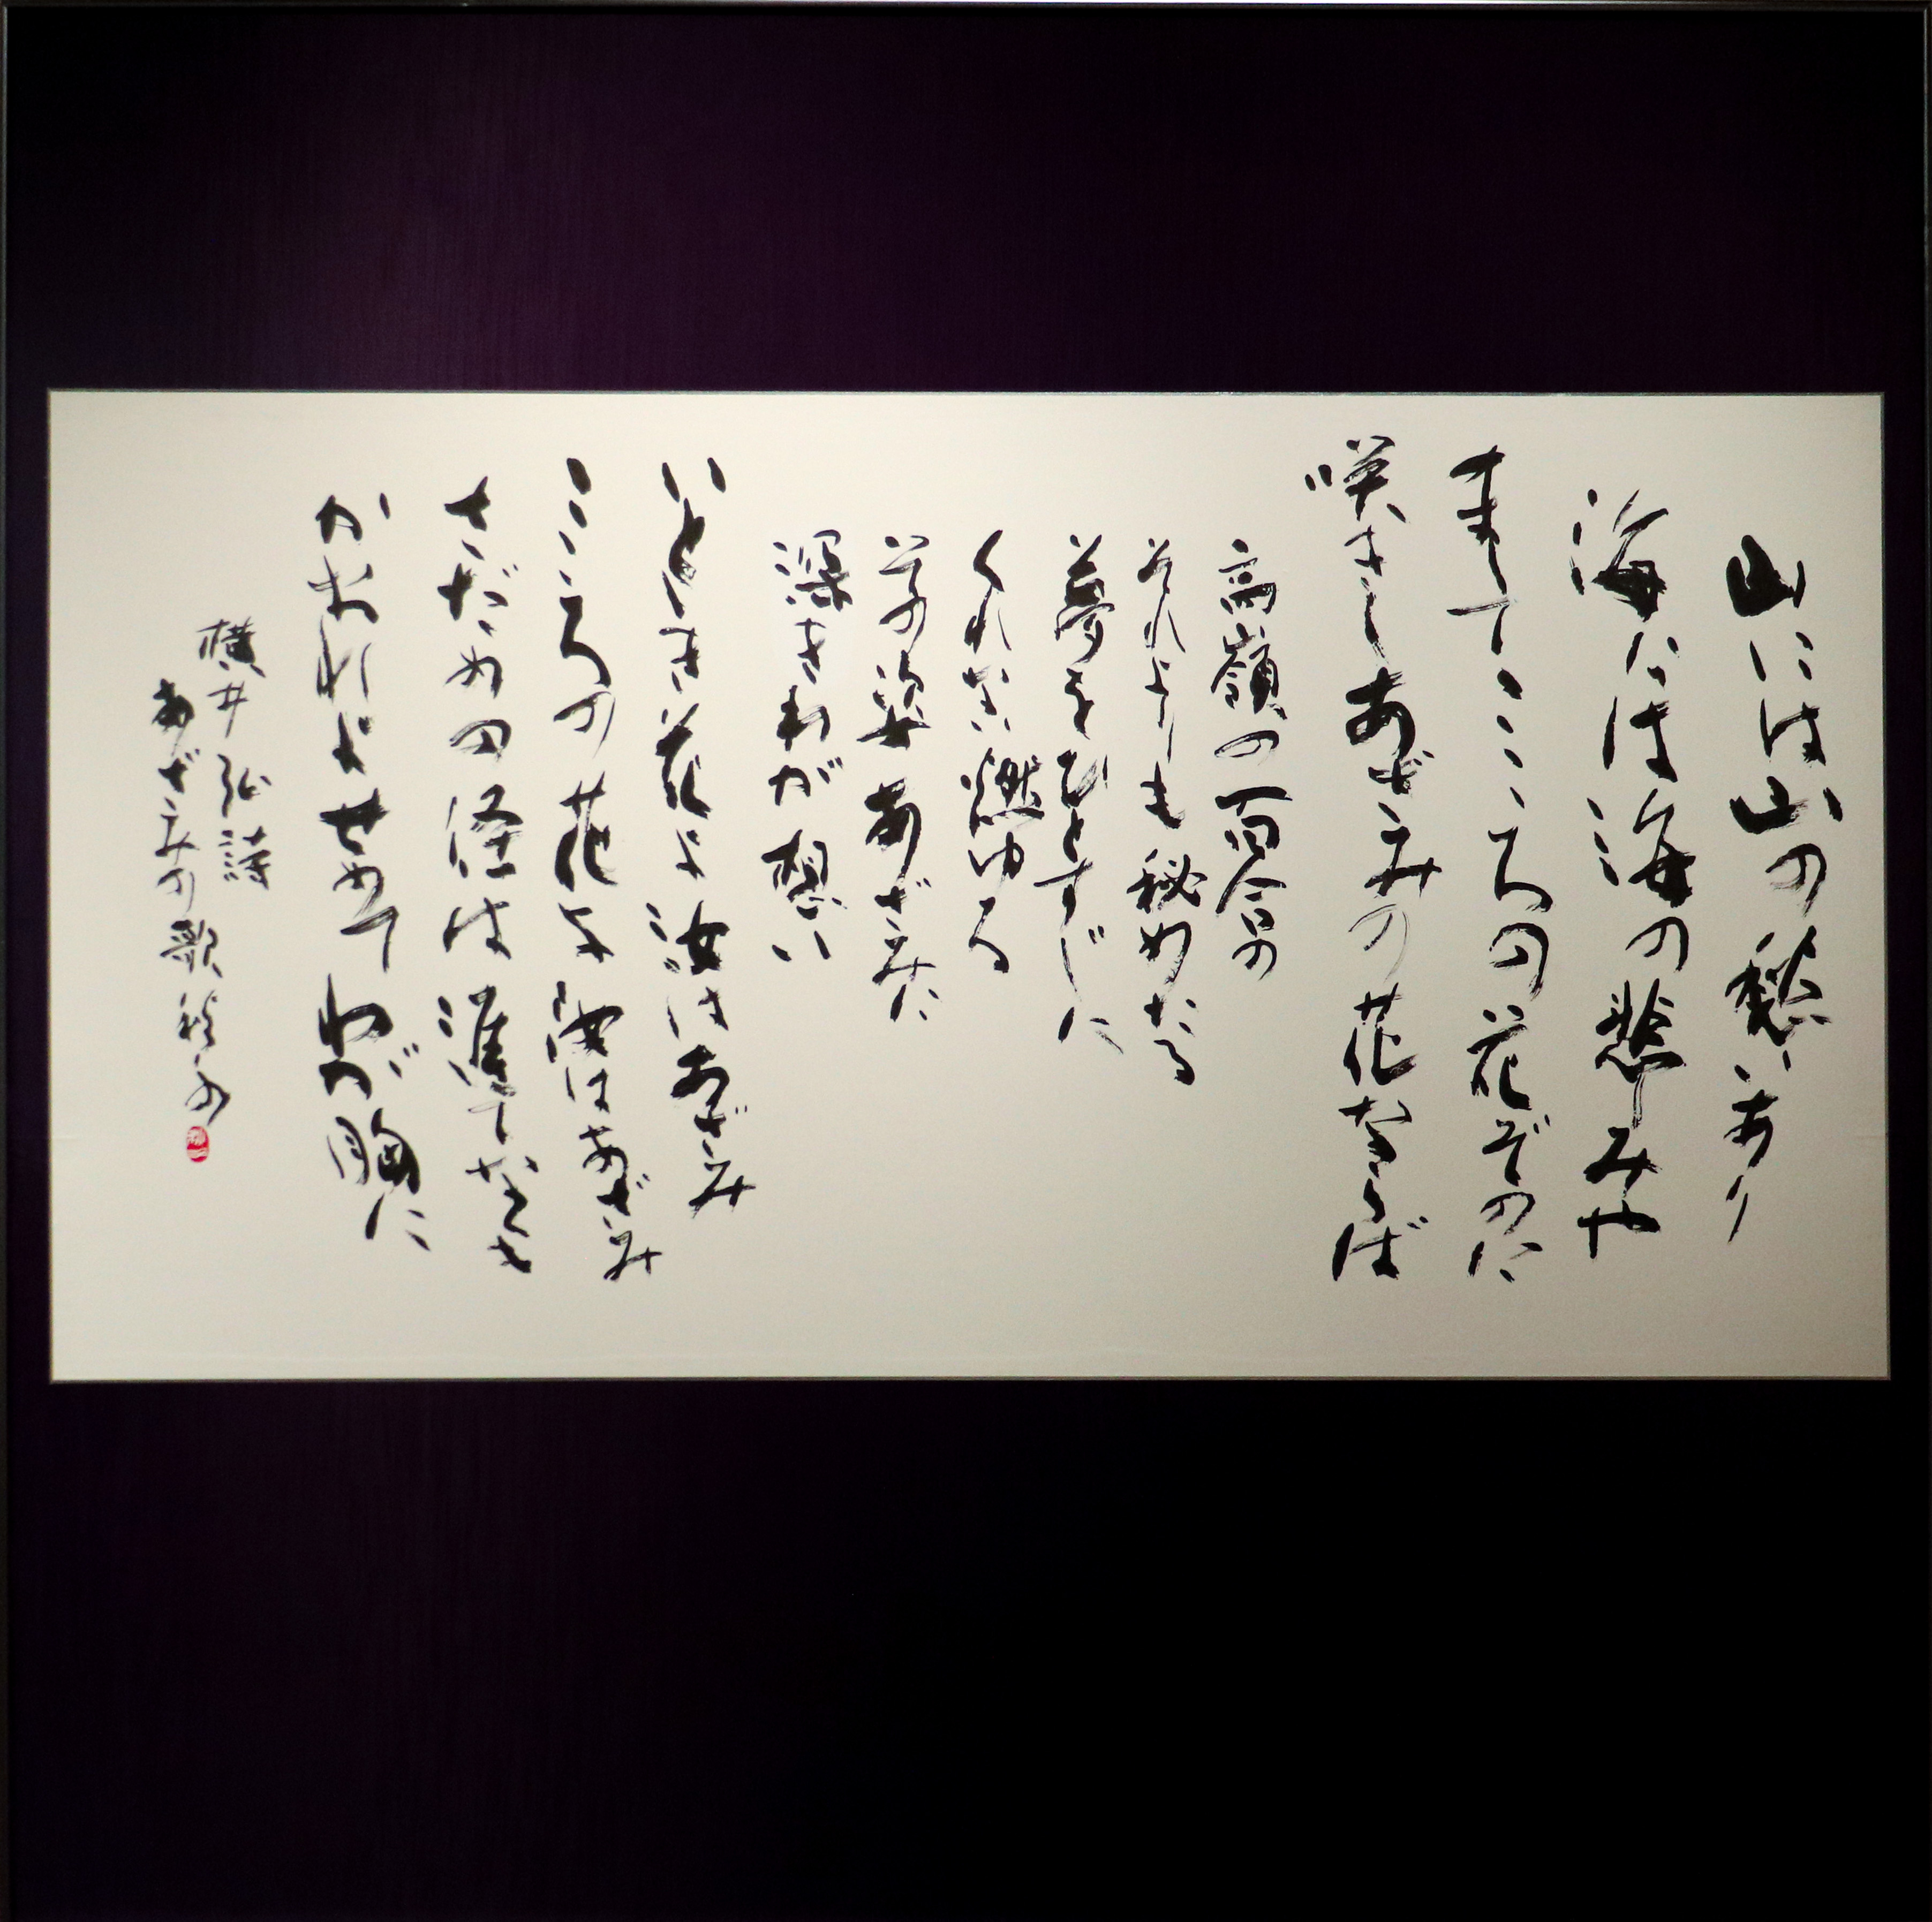 山には山の愁いあり
海には海の悲しみや
ましてこころの花ぞのに
咲きしあざみの花ならば
高嶺の百合の
それよりも秘めたる
夢をひとすじに
くれない燃ゆる
その姿あざみに
深きわが想い
いとしき花よ汝はあざみ
こころの花よ汝はあざみ
さだめの径は涯てなくも
かおれよせめてわが胸に
横井弘詩
あざみの歌